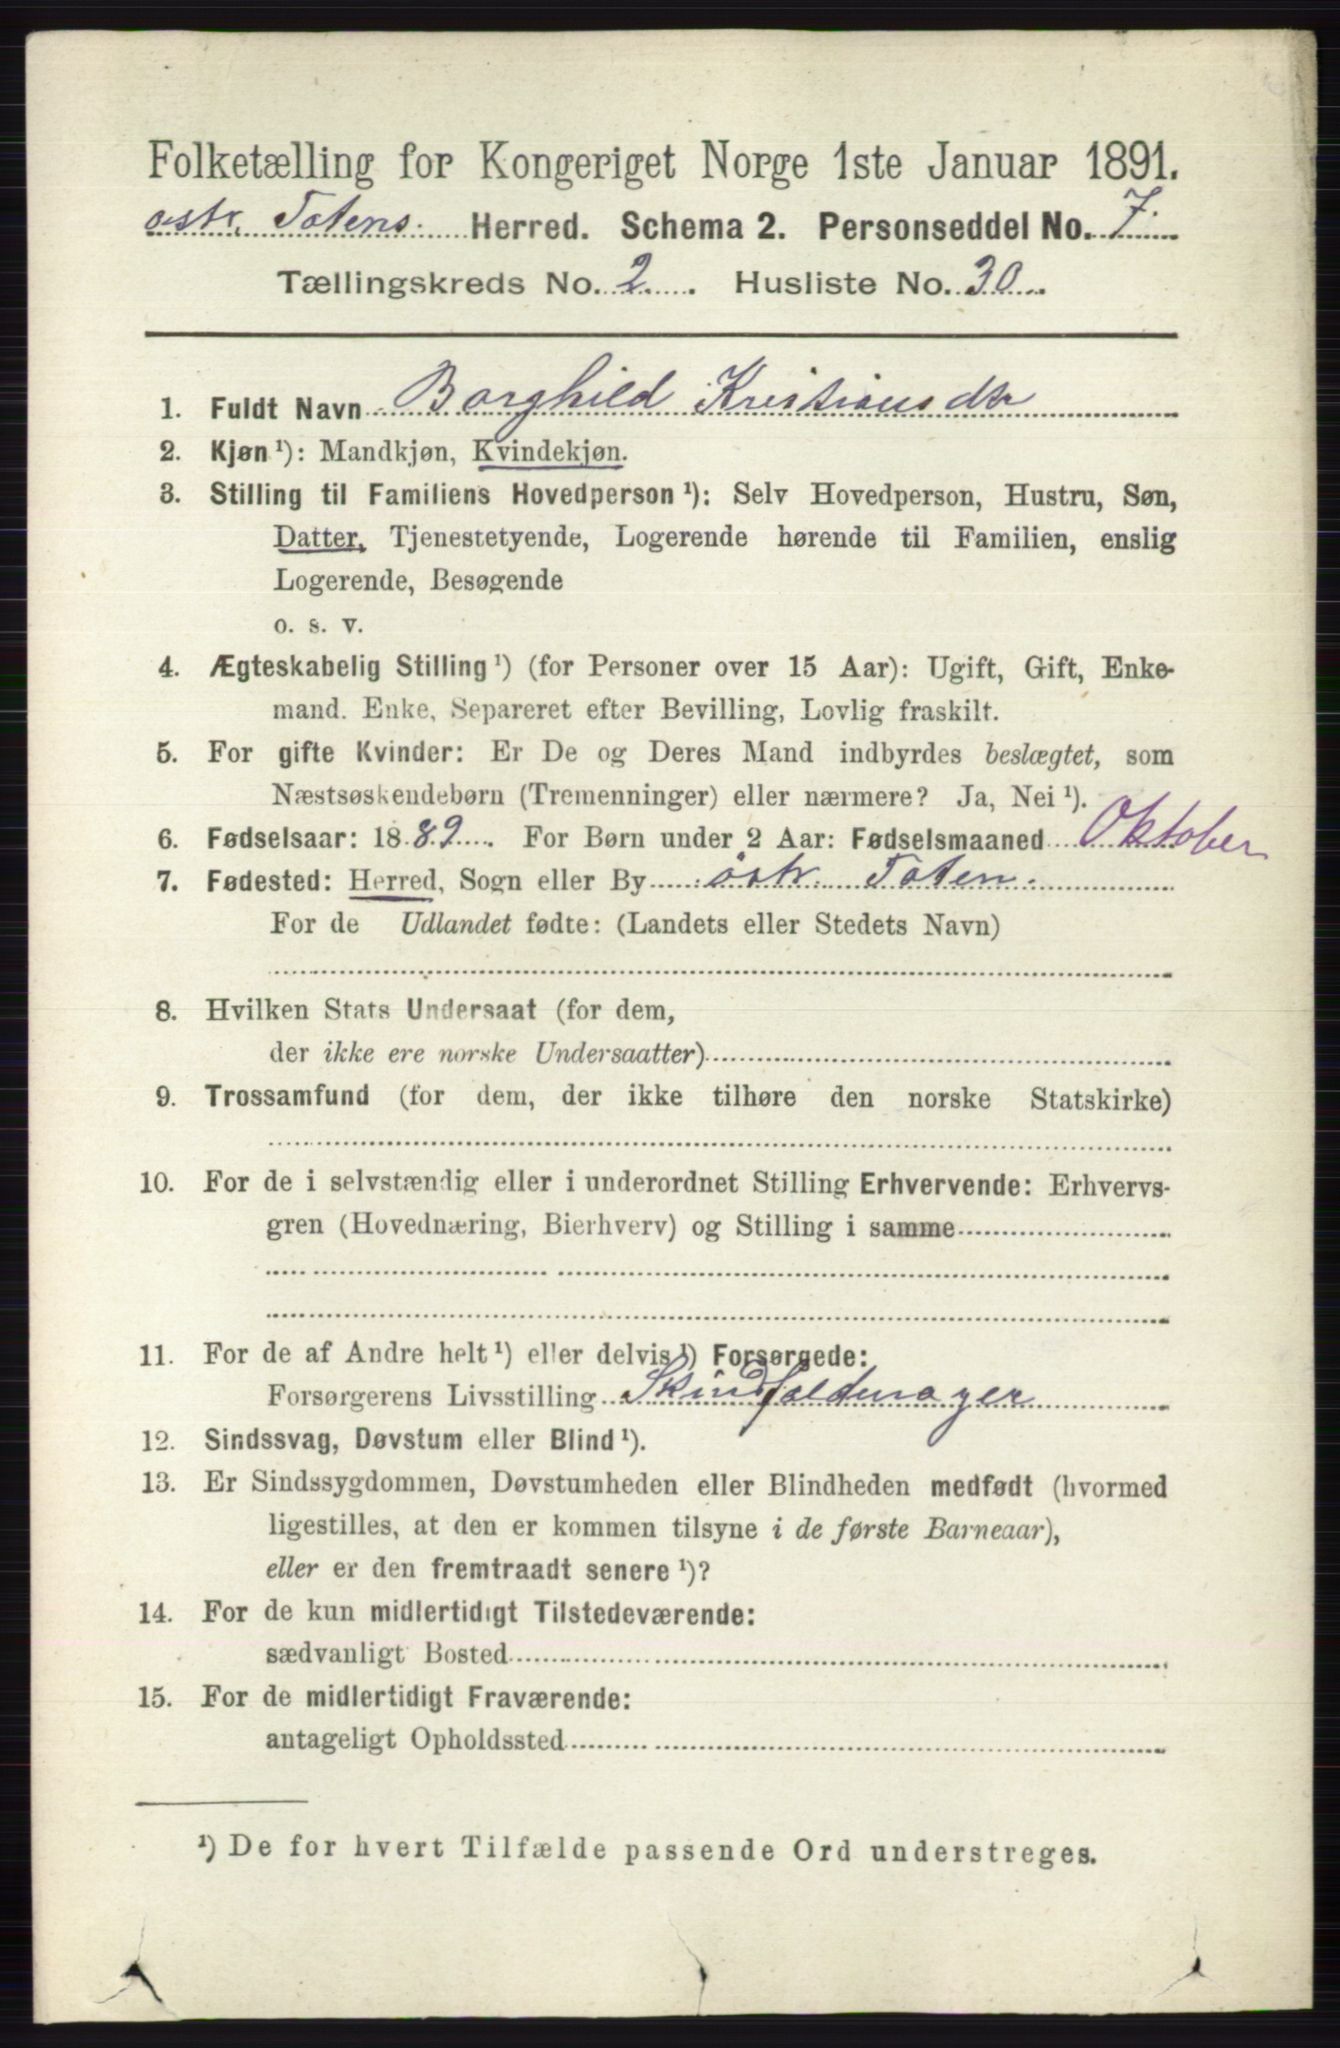 Folketælling for Kongeriget Norge 1ste Januar 1891.
østr. Totens Herred. Schema 2. Personseddel No. 7
Tællingskreds No. 2 Husliste No. 30
1. Fuldt Navn Borghild Kristiansdtr
2. Kjøn ¹): Mandkjøn, Kvindekjøn.
3. Stilling til Familiens Hovedperson ¹): Selv Hovedperson, Hustru, Søn,
Datter, Tjenestetyende, Logerende hørende til Familien, enslig
Logerende, Besøgende
o. s. v.
4. Ægteskabelig Stilling ¹) (for Personer over 15 Aar): Ugift, Gift, Enke-
mand. Enke, Separeret efter Bevilling, Lovlig fraskilt.
5. For gifte Kvinder: Er De og Deres Mand indbyrdes beslægtet, som
Næstsøskendebørn (Tremenninger) eller nærmere? Ja, Nei ¹).
6. Fødselsaar: 1889. For Børn under 2 Aar: Fødselsmaaned Oktober
7. Fødested: Herred, Sogn eller By østr. Toten.
For de Udlandet fødte: (Landets eller Stedets Navn)
8. Hvilken Stats Undersaat (for dem,
der ikke ere norske Undersaatter)
9. Trossamfund (for dem, der ikke tilhøre den norske Statskirke)
10. For de i selvstændig eller i underordnet Stilling Erhvervende: Erhvervs-
gren (Hovednæring, Bierhverv) og Stilling i samme
11. For de af Andre helt ¹) eller delvis ¹) Forsørgede:
Forsørgerens Livsstilling
12. Sindssvag, Døvstum eller Blind ¹).
13. Er Sindssygdommen, Døvstumheden eller Blindheden medfødt (hvormed
ligestilles, at den er kommen tilsyne i de første Barneaar),
eller er den fremtraadt senere ¹)?
14. For de kun midlertidigt Tilstedeværende:
sædvanligt Bosted
15. For de midlertidigt Fraværende:
antageligt Opholdssted
¹) De for hvert Tilfælde passende Ord understreges.